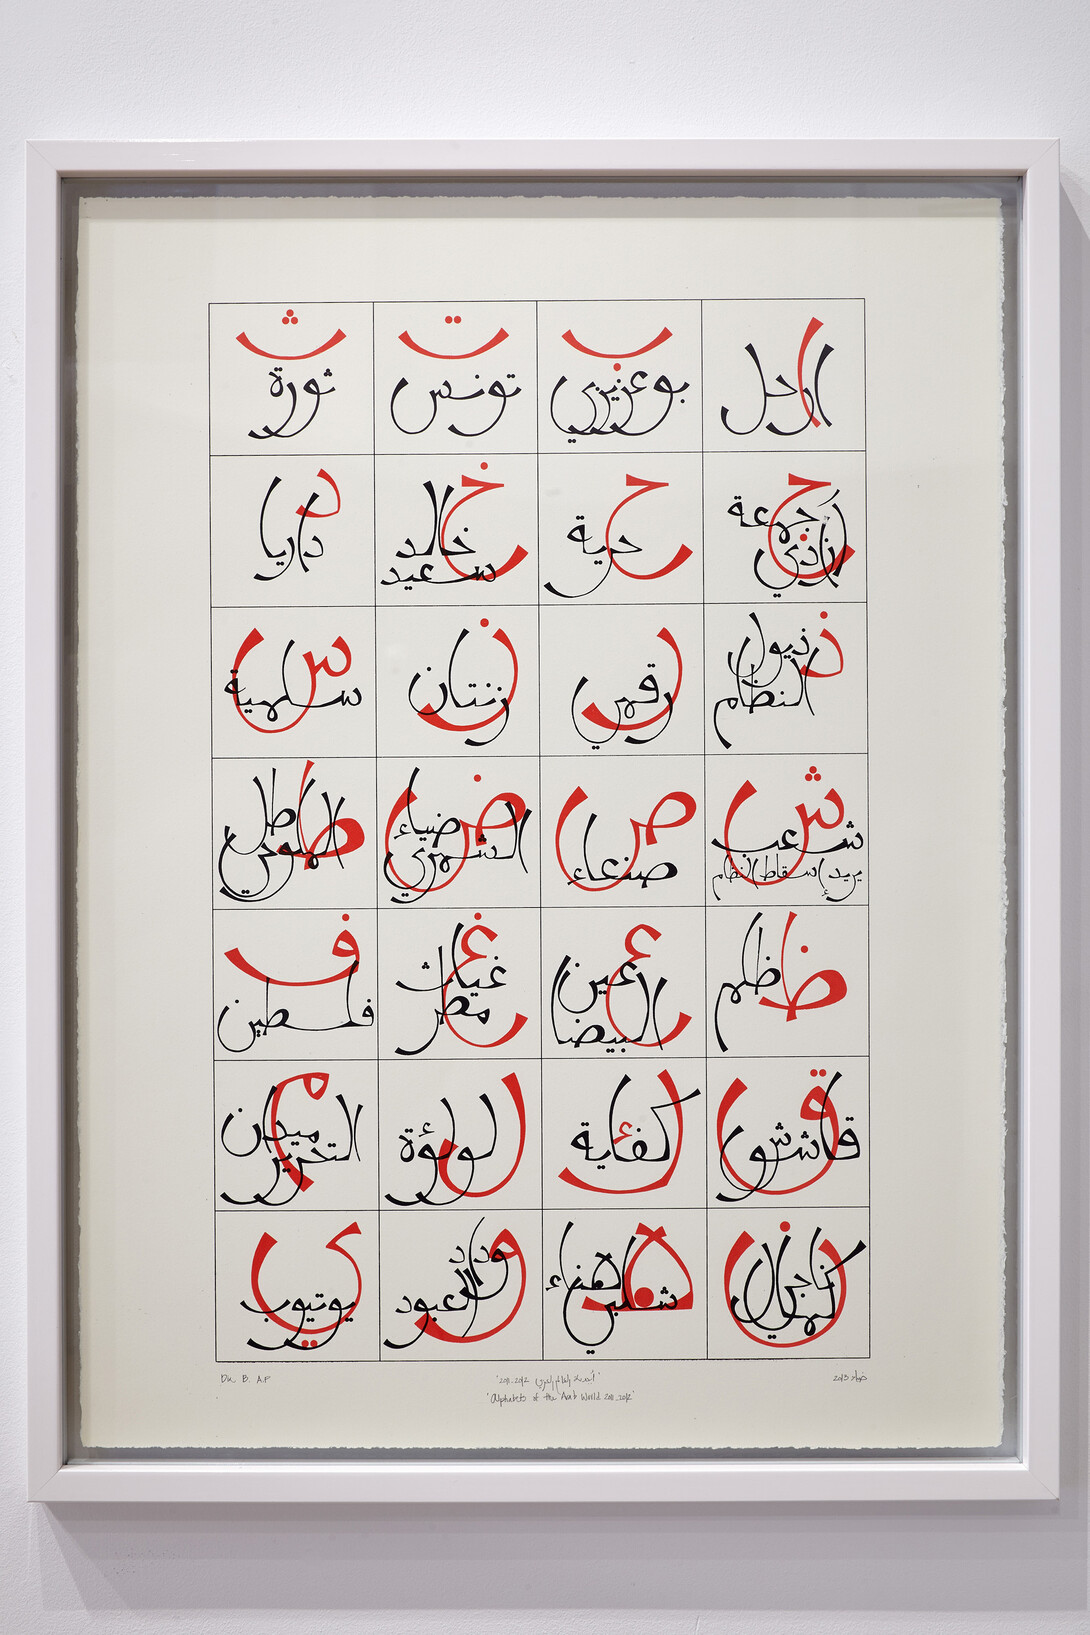 ا
ارحل
ب
بوعزيزي
ت
تونس
ث
ثورة
ج
جمعة
زنازي
ح
حرية
خ
خالد
سعيد
د
داريا
ذ
ذيول
النظام
ر
رقمي
ز
زنتان
س
سلمية
ش
شعب
يريد إسقاط النظام
ص
صنعاء
ض
ضياء
الشمري
ط
طل
الملوحي
ظ
ظلم
ع
عين
البيضا
غ
غياث
مطر
ف
فلسطين
ق
قاشوش
ك
كفاية
ل
لؤلؤة
م
ميدان
التحرير
ن
ناجي
العلي
ه
هناء
شلبي
و
وداد
العبود
ي
يوتيوب
DK B. A.P
"أبجدية العالم العربي 2011-2012"
"Alphabets of the Arab World 2011-2012"
ضياء 2013